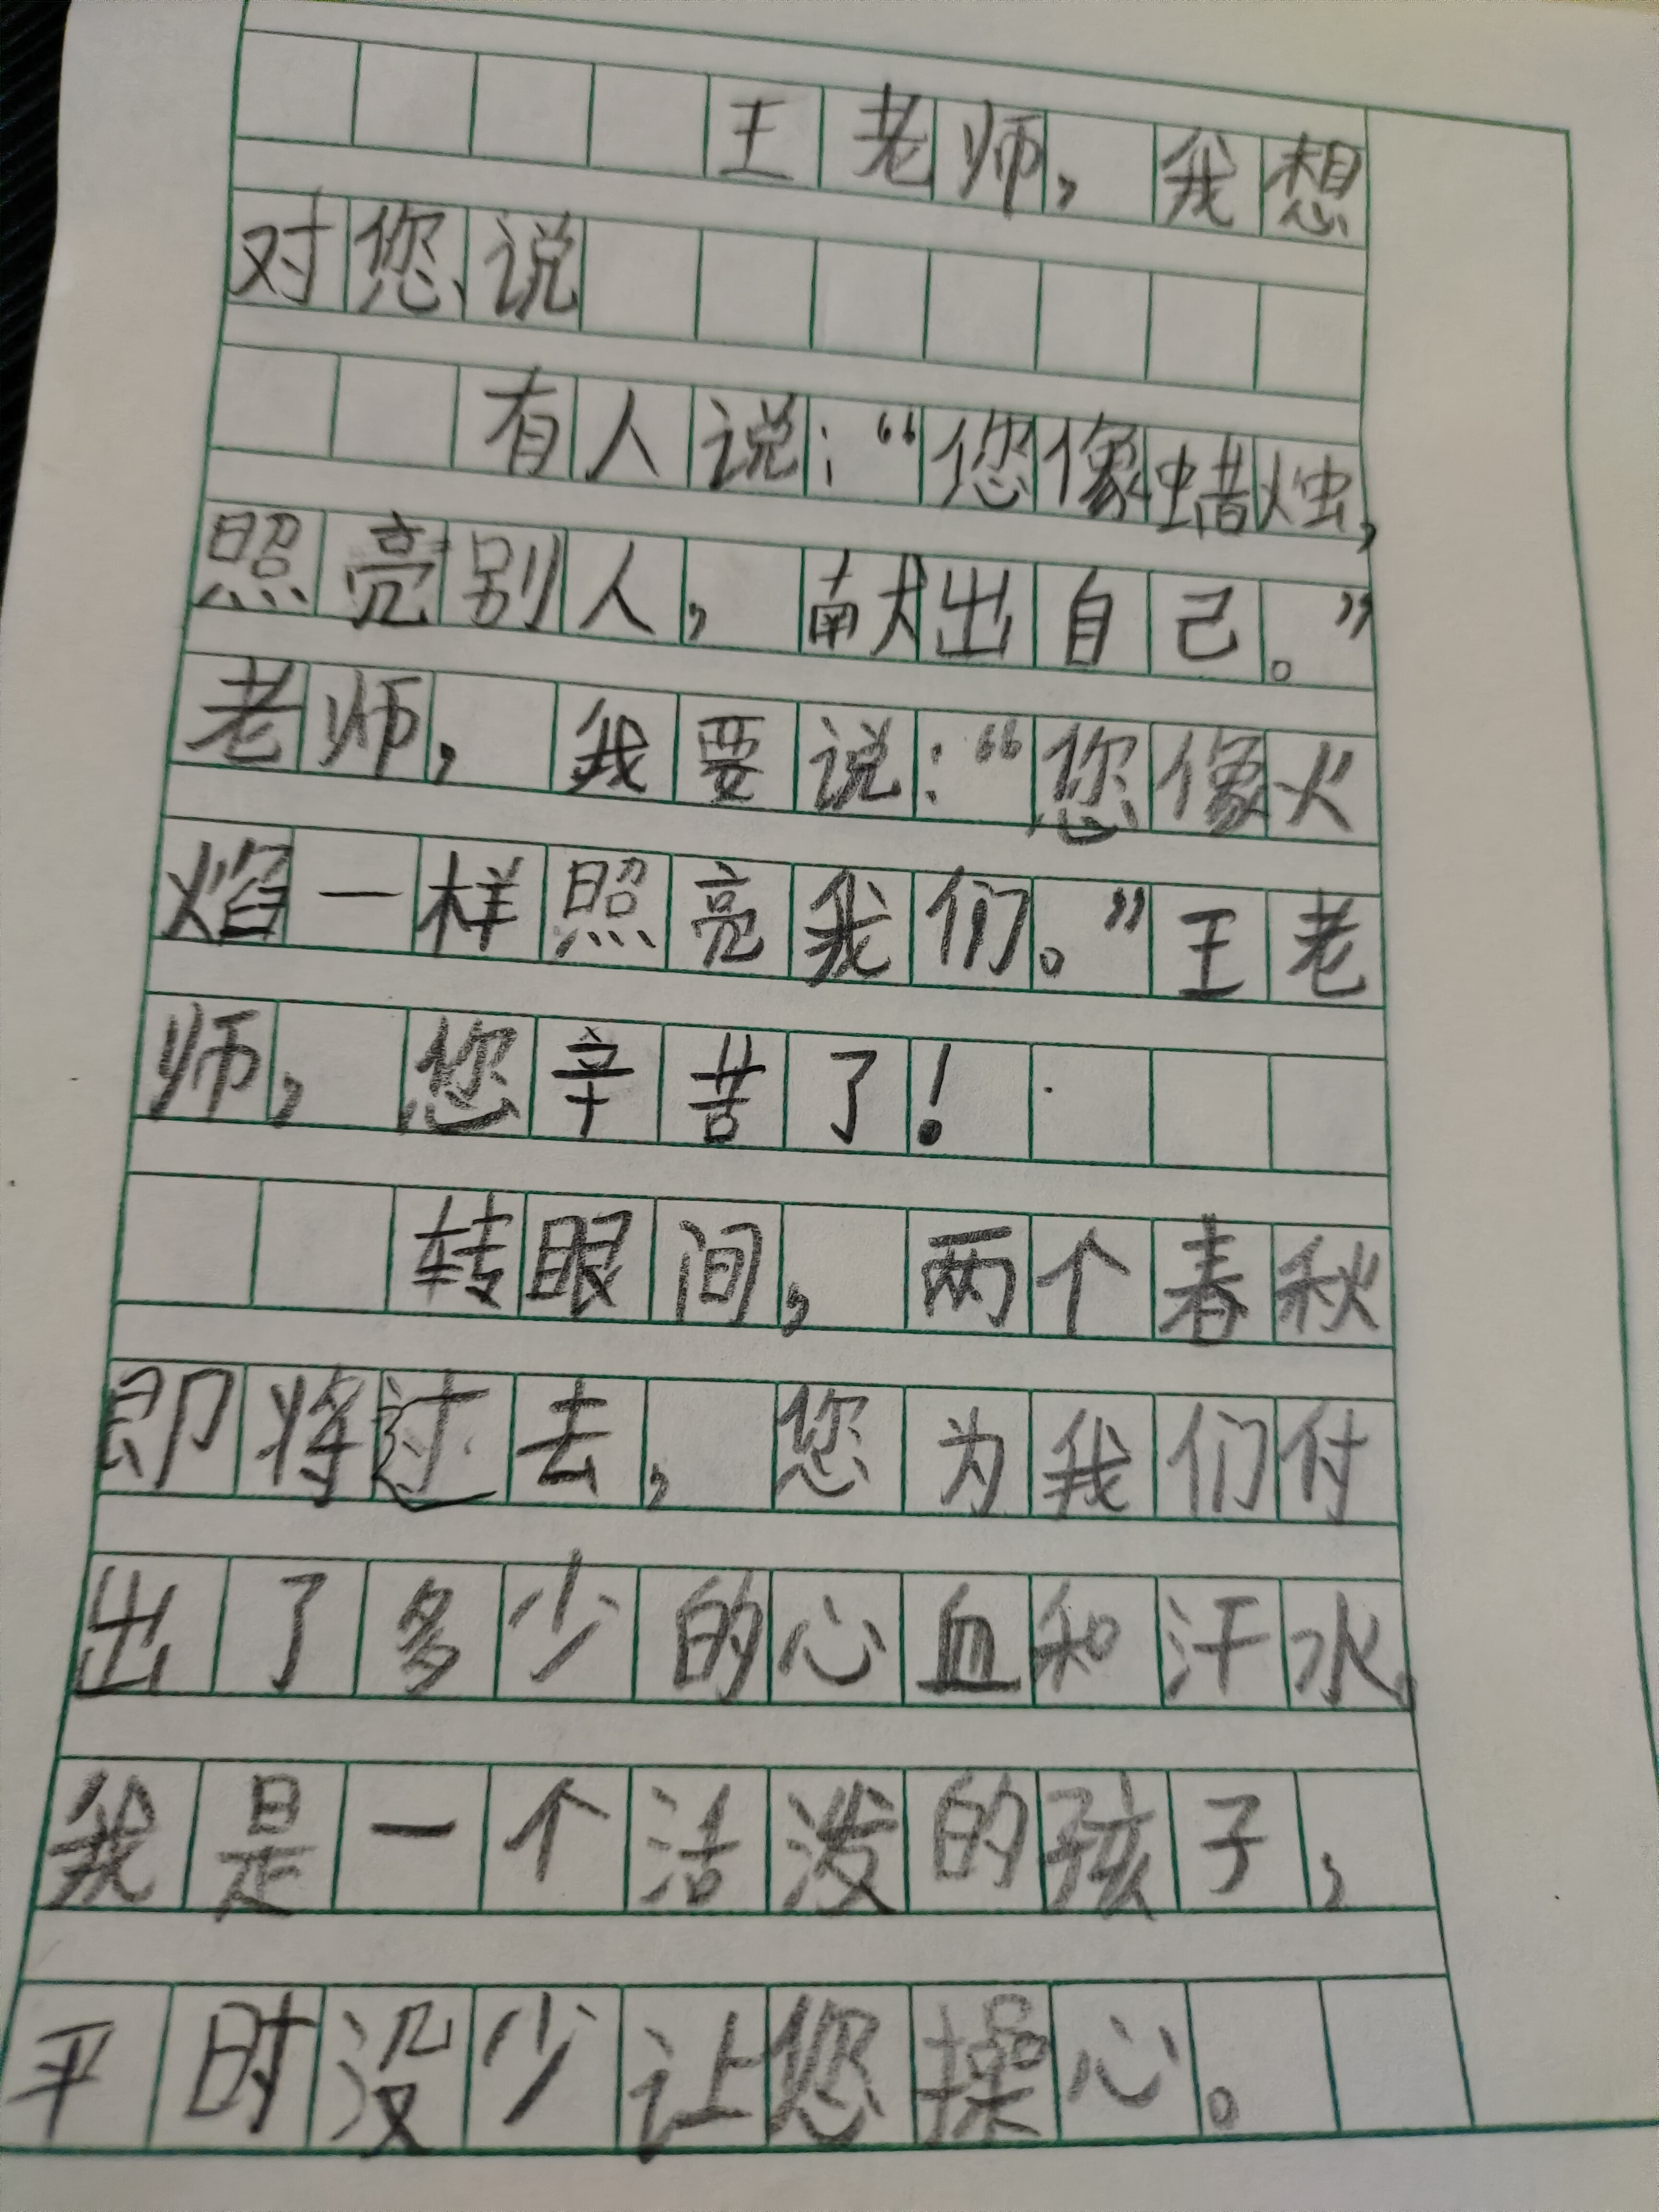 王老师，我想
对您说
有人说：“您像蜡烛，
照亮别人，献出自己。”
老师，我要说：“您像火
焰一样照亮我们。”王老
师，您辛苦了！
转眼间，两个春秋
即将过去，您为我们付
出了多少的心血和汗水，
我是一个活泼的孩子，
平时没少让您操心。